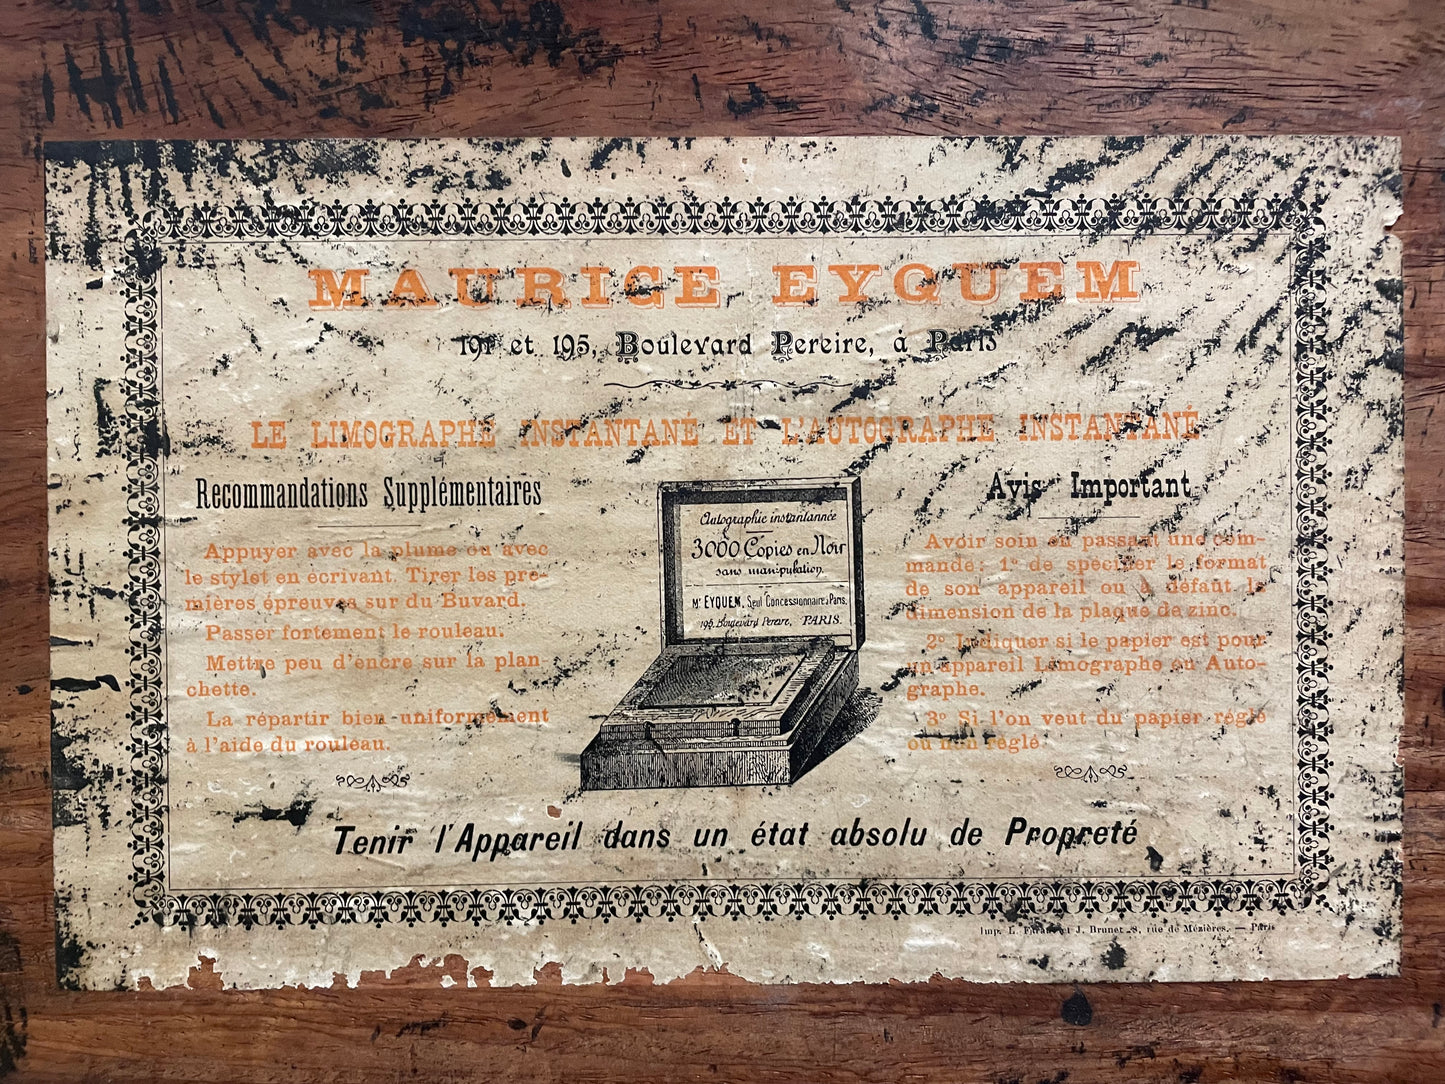 MAURICE EYQUEM
191 et 195, Boulevard Pereire, à Paris
LE LIMOGRAPHE INSTANTANÉ ET L'AUTOGRAPHE INSTANTANÉ
Recommandations Supplémentaires
Appuyer avec la plume ou avec
le stylet en ecrivant. Tirer les pre-
mières épreuves sur du Buvard.
Passer fortement le rouleau.
Mettre peu d'encre sur la plan-
chette.
La répartir bien uniformément
à l'aide du rouleau.
Autographie instantannée
3000 Copies en Noir
sans manipulation.
Mr EYQUEM, Seul Concessionnaire à Paris.
195, Boulevard Pereire, PARIS
Avis Important
Avoir soin en passant une com-
mande: 1º de spécifier le format
de son appareil ou à défaut la
dimension de la plaque de zinc.
2º Indiquer si le papier est pour
un appareil Limographe ou Auto-
graphe.
3º Si l'on veut du papier réglé
ou non réglé
Tenir l'Appareil dans un état absolu de Propreté
Imp. L. et J. Brunet, 8, rue de Mézières. — Paris